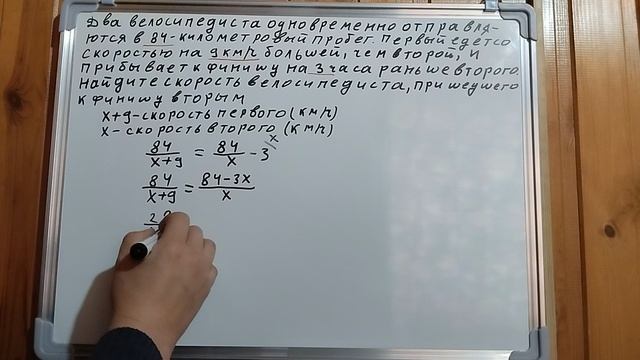 Два велосипедиста одновременно отправля-
ются в 84-километровый пробег. Первый едет со
скоростью на 9 км/ч большей, чем второй, и
прибывает к финишу на 3 часа раньше второго.
Найдите скорость велосипедиста, пришедшего
к финишу вторым
x+9-скорость первого (км/ч)
x-скорость второго (км/ч)
84/(x+9) = 84/x - 3 x
84/(x+9) = (84-3x)/x
2